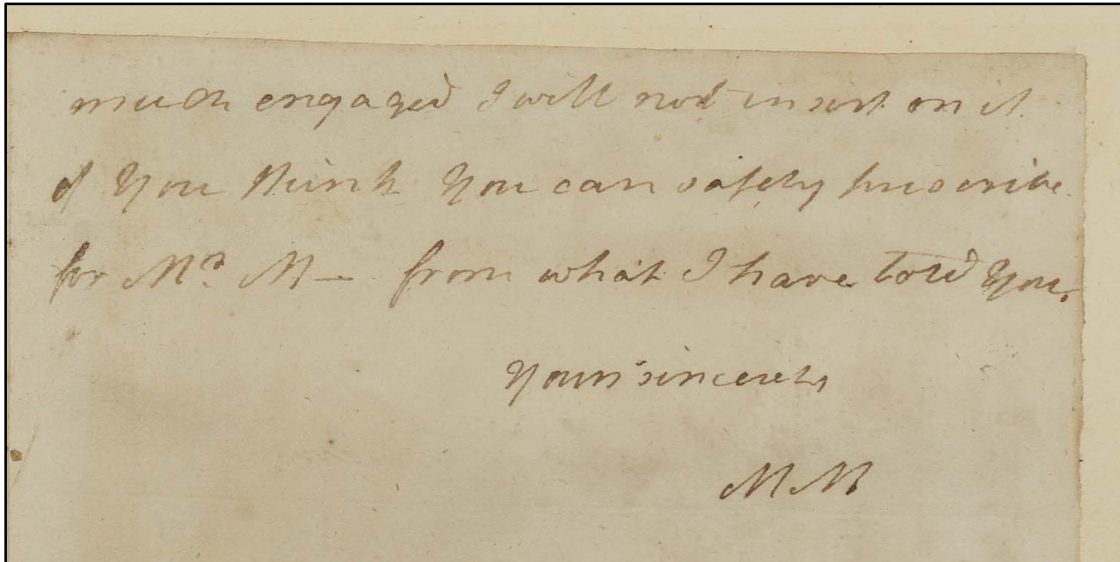 much engaged I will not insist on it
if You think You can safely prescribe
for Mr. M— from what I have told You.
Yours sincerely
MM